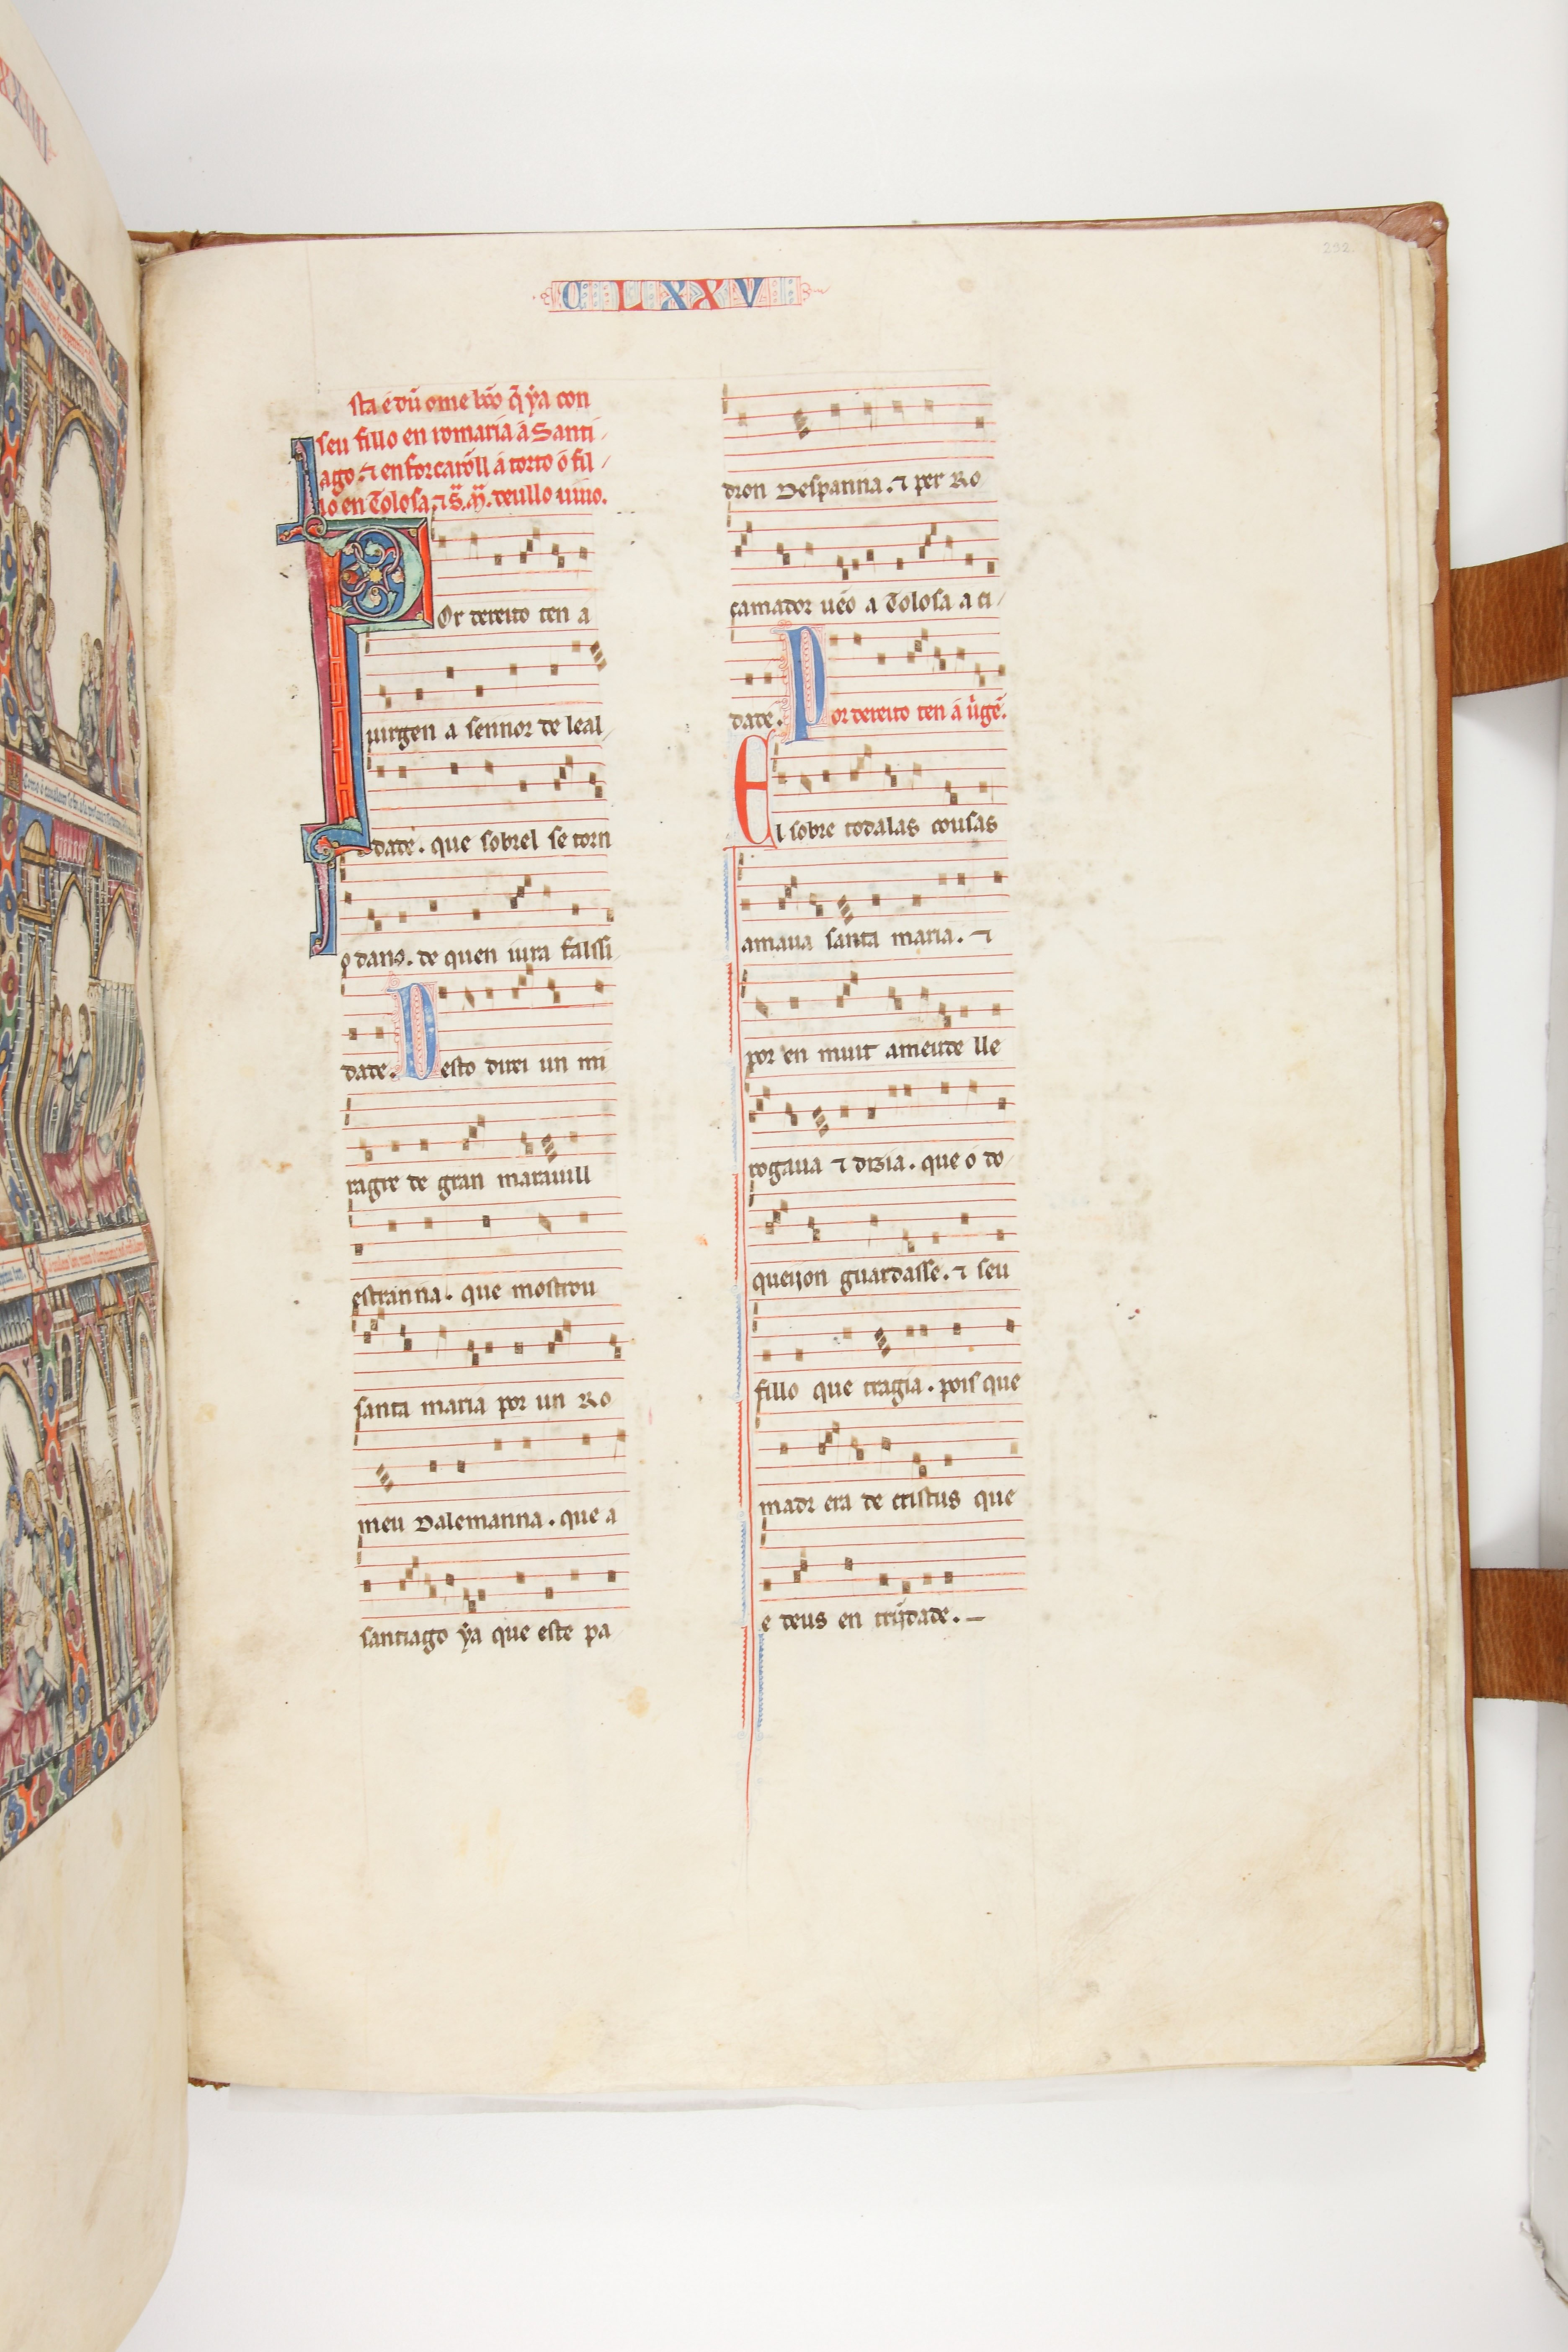 292
C LXXV
sta é dũ ome bõo q̃ ya con
seu fillo en romaria á Santi
ago. ⁊ enforcarõll á torto ó fil
lo en Tolosa, ⁊ S. M. deullo uiuo.
Por dereito ten a
uirgen a sennor de leal
dade. que sobrel se torn
o dano. de quen iura falssi
dade. Desto direi un mi
ragre de gran marauill
estranna. que mostrou
santa maria por un Ro
meu Dalemanna. que a
santiago ya que este pa
dron Despanna. ⁊ per Ro
camador uẽo a Tolosa a ci
dade. Por dereito ten á uirgẽ.
El sobre todalas cousas
amaua santa maria. ⁊
por en muit ameude lle
rogaua ⁊ dizia. que o do
queijon guardasse. ⁊ seu
fillo que tragia. pois que
madr era de cristus que
e deus en trijdade.